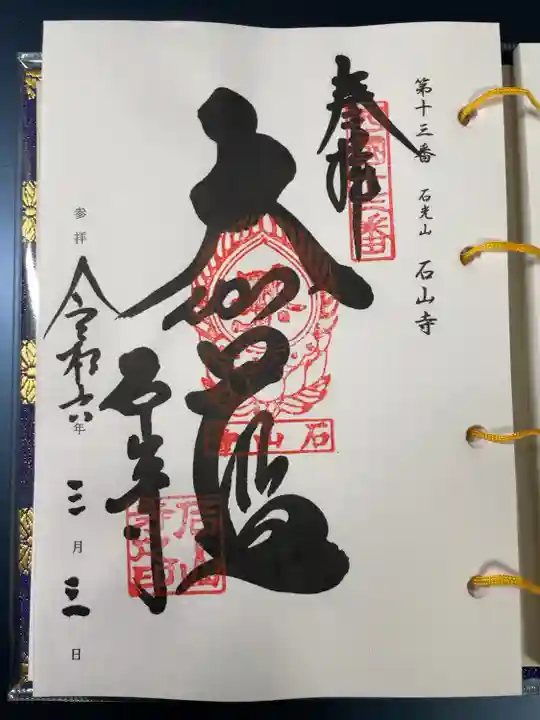 第十三番 石光山 石山寺
奉拝
西国十三番
大伽藍
石山
石山寺
石山寺印
参拝 令和六年三月三一日